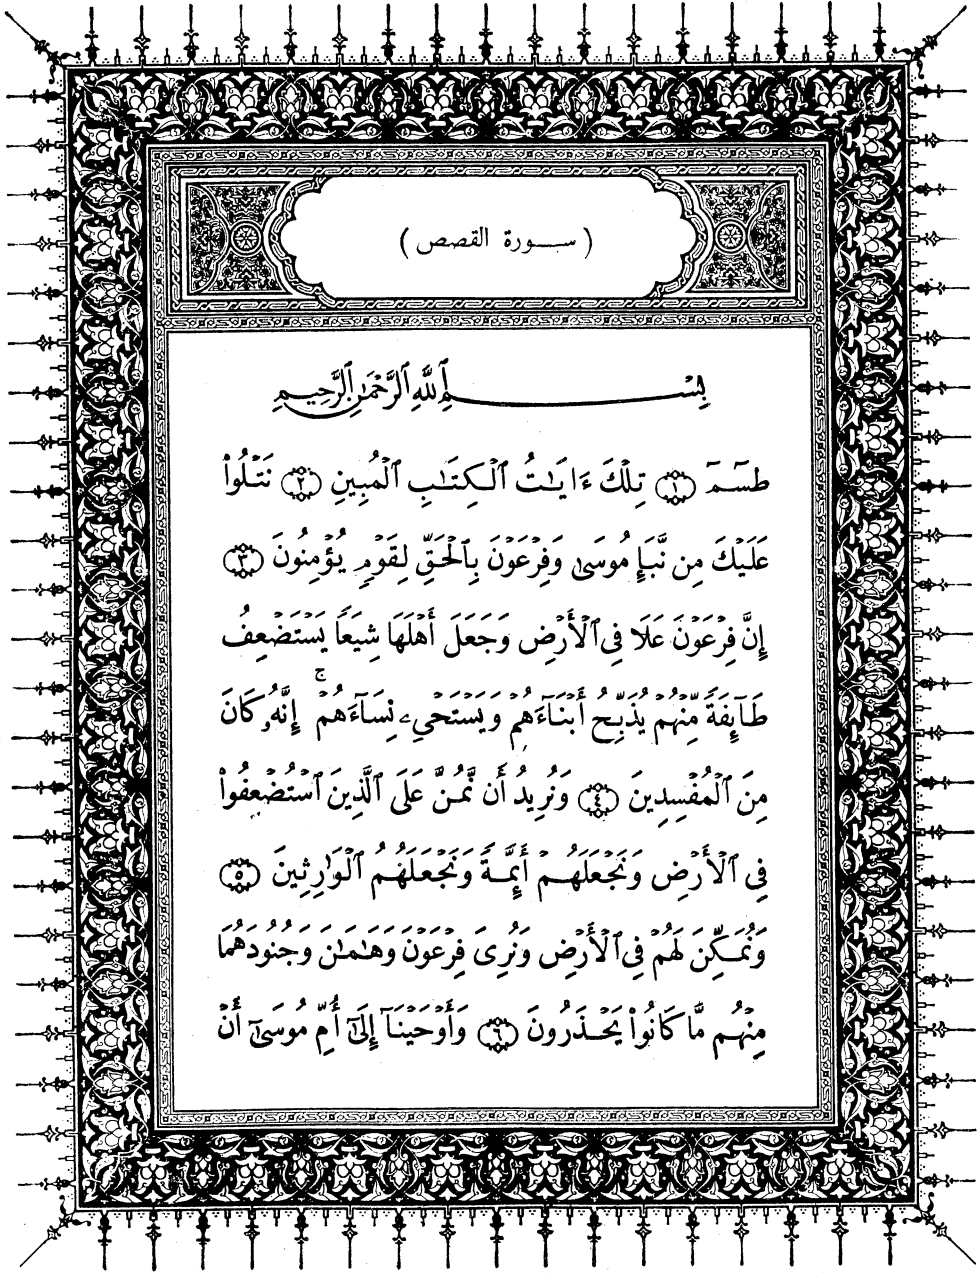 ( ســورة القصص )
بِسْمِ ٱللَّهِ ٱلرَّحْمَٰنِ ٱلرَّحِيمِ
طسٓمٓ ١ تِلْكَ ءَايَٰتُ ٱلْكِتَٰبِ ٱلْمُبِينِ ٢ نَتْلُوا۟
عَلَيْكَ مِن نَّبَإِ مُوسَىٰ وَفِرْعَوْنَ بِٱلْحَقِّ لِقَوْمٍ يُؤْمِنُونَ ٣
إِنَّ فِرْعَوْنَ عَلَا فِى ٱلْأَرْضِ وَجَعَلَ أَهْلَهَا شِيَعًا يَسْتَضْعِفُ
طَآئِفَةً مِّنْهُمْ يُذَبِّحُ أَبْنَآءَهُمْ وَيَسْتَحْىِۦ نِسَآءَهُمْ ۚ إِنَّهُۥ كَانَ
مِنَ ٱلْمُفْسِدِينَ ٤ وَنُرِيدُ أَن نَّمُنَّ عَلَى ٱلَّذِينَ ٱسْتُضْعِفُوا۟
فِى ٱلْأَرْضِ وَنَجْعَلَهُمْ أَئِمَّةً وَنَجْعَلَهُمُ ٱلْوَٰرِثِينَ ٥
وَنُمَكِّنَ لَهُمْ فِى ٱلْأَرْضِ وَنُرِىَ فِرْعَوْنَ وَهَٰمَٰنَ وَجُنُودَهُمَا
مِنْهُم مَّا كَانُوا۟ يَحْذَرُونَ ٦ وَأَوْحَيْنَآ إِلَىٰٓ أُمِّ مُوسَىٰٓ أَنْ